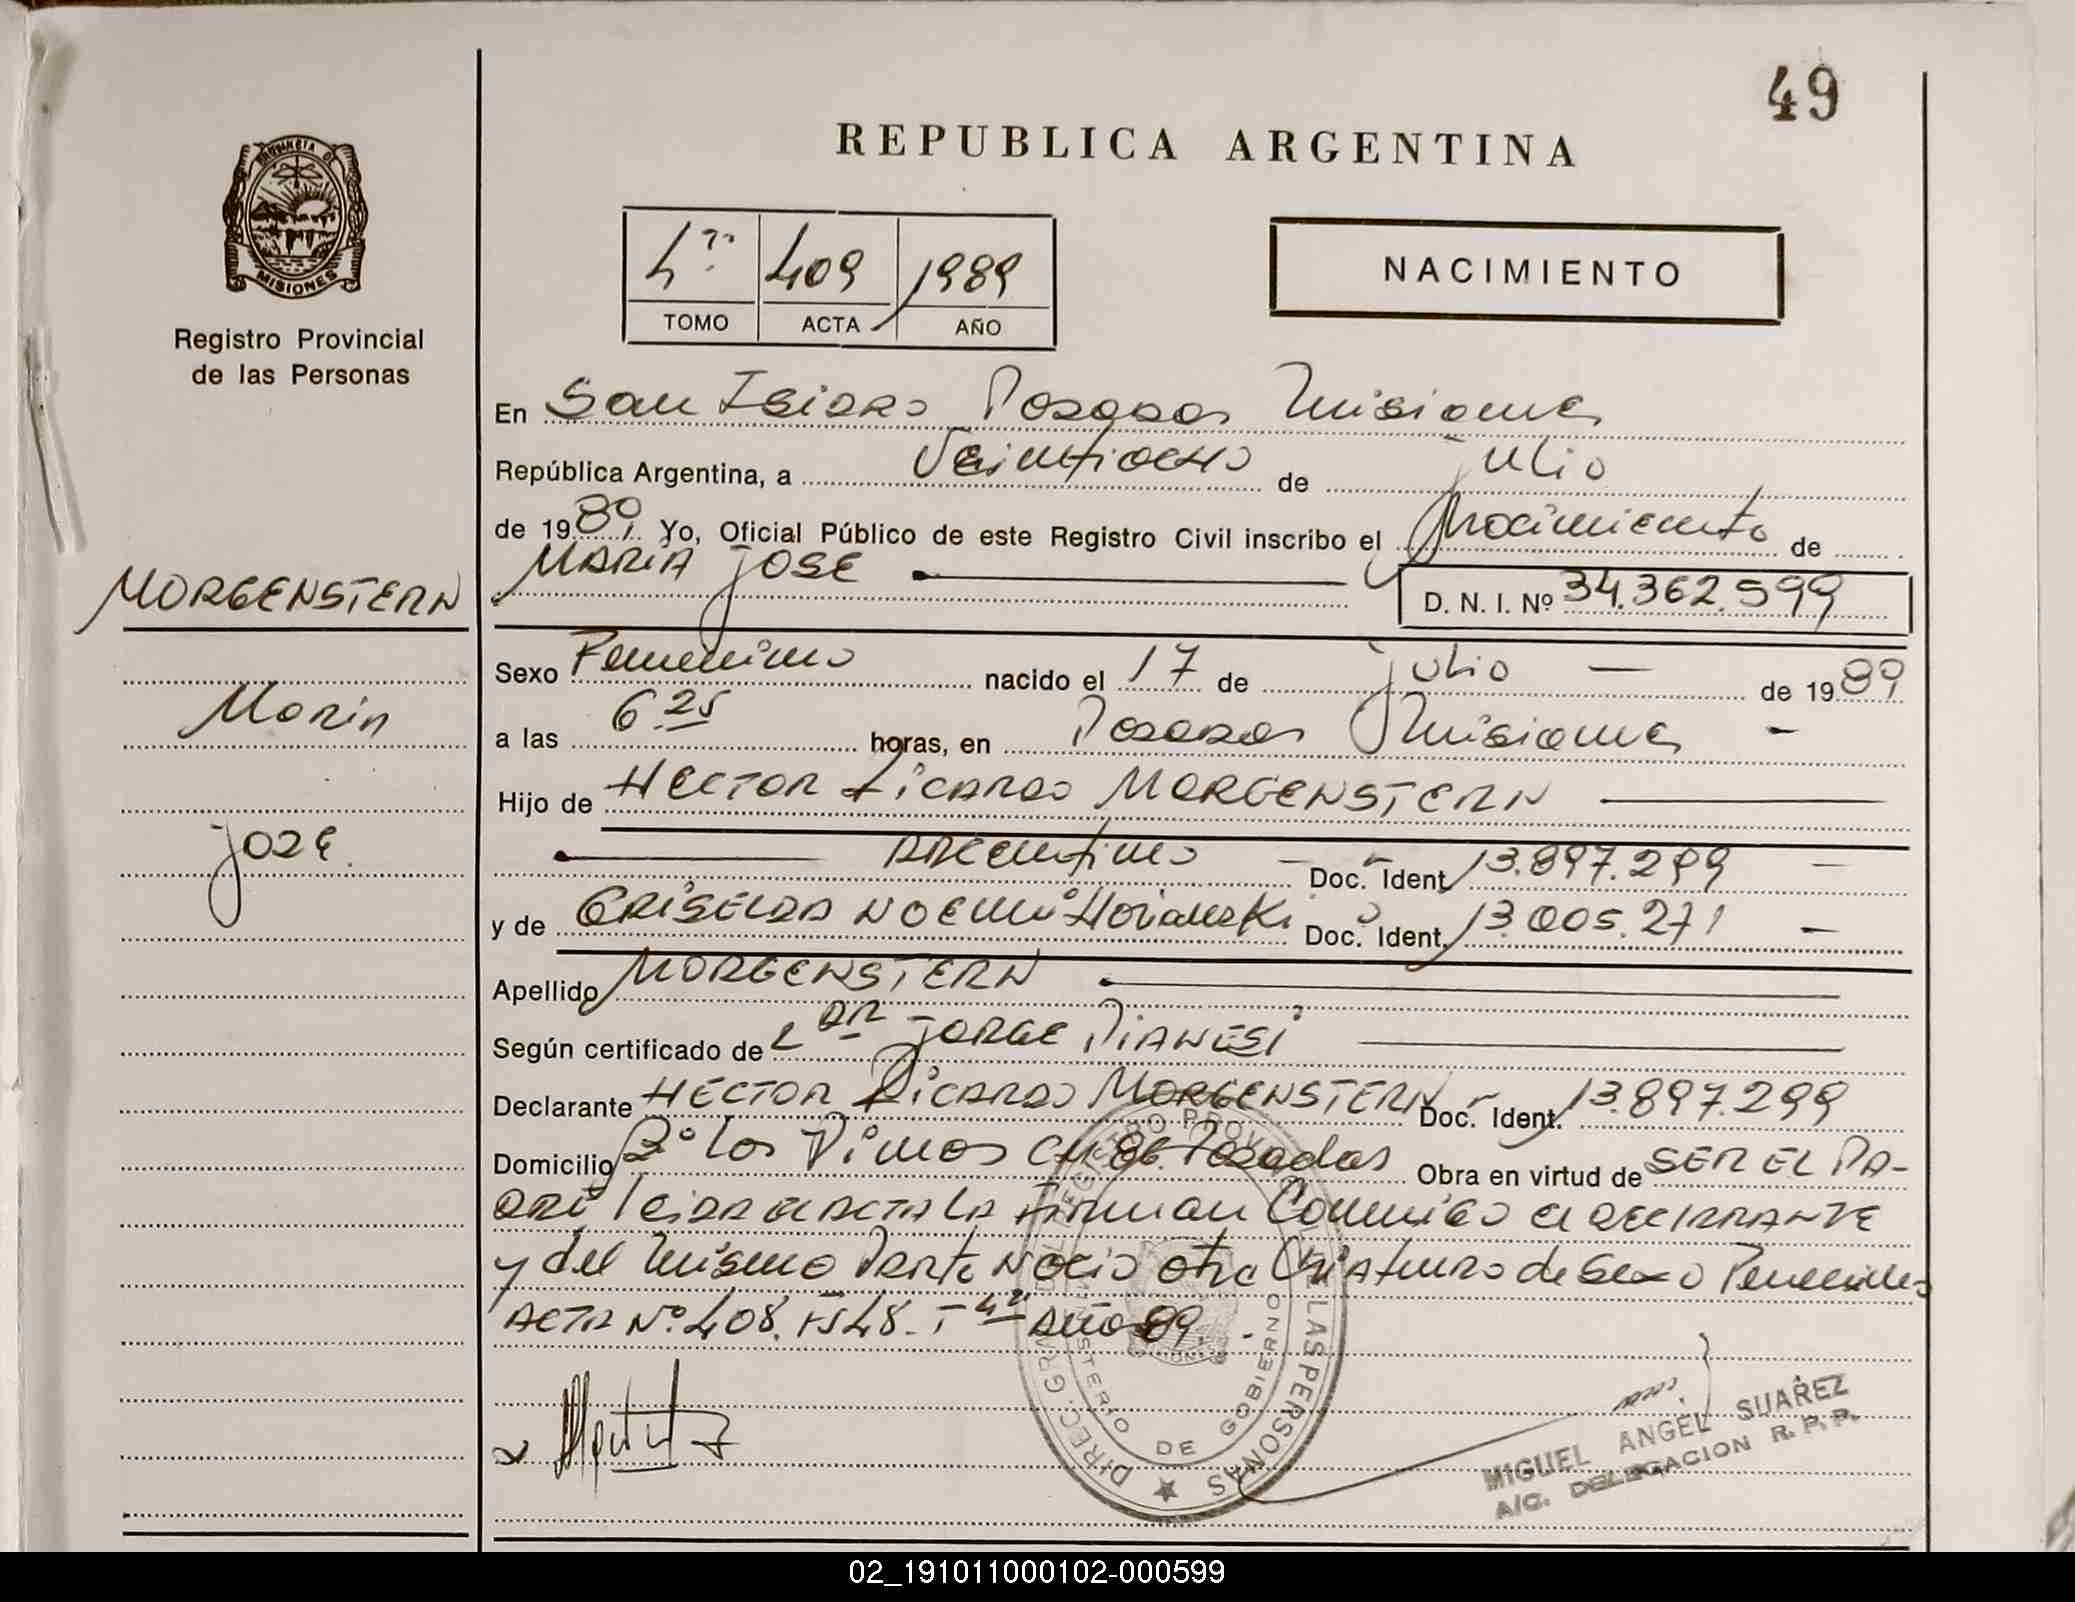 49
REPUBLICA ARGENTINA
PROVINCIA DE
MISIONES
Registro Provincial
de las Personas
4º 409 1989
TOMO ACTA AÑO
NACIMIENTO
En San Isidro Posadas Misiones
República Argentina, a Veintiocho de Julio
de 1989 Yo, Oficial Público de este Registro Civil inscribo el Nacimiento de
MARIA JOSE
D. N. I. Nº 34.362.599
MORGENSTERN
Maria
Jose.
Sexo Femenino nacido el 17 de Julio — de 1989
a las 6 25 horas, en Posadas Misiones -
Hijo de HECTOR Ricardo MORGENSTERN
ARGentino - Doc. Ident. 13.897.299 -
y de GRISELDA NOEMi Doc. Ident. 13.005.271 -
Apellido MORGENSTERN
Según certificado de JORGE PIANESI
Declarante HECTOR Ricardo MORGENSTERN Doc. Ident. 13.897.299
Domicilio Bº Los Pinos CH 96 Posadas Obra en virtud de SER EL PA-
DRE Leida el ACTA LA Firman Conmigo el DECLARANTE
y del mismo Parto Nacio otra Criatura de Sexo Femenino
ACTA Nº 408. Fs 48. Tº 4º Año 89.
DIREC. GRAL. DEL REGISTRO PROVINCIAL DE LAS PERSONAS
MINISTERIO DE GOBIERNO
MIGUEL ANGEL SUAREZ
A/C. DELEGACION R. P. P.
02_191011000102-000599